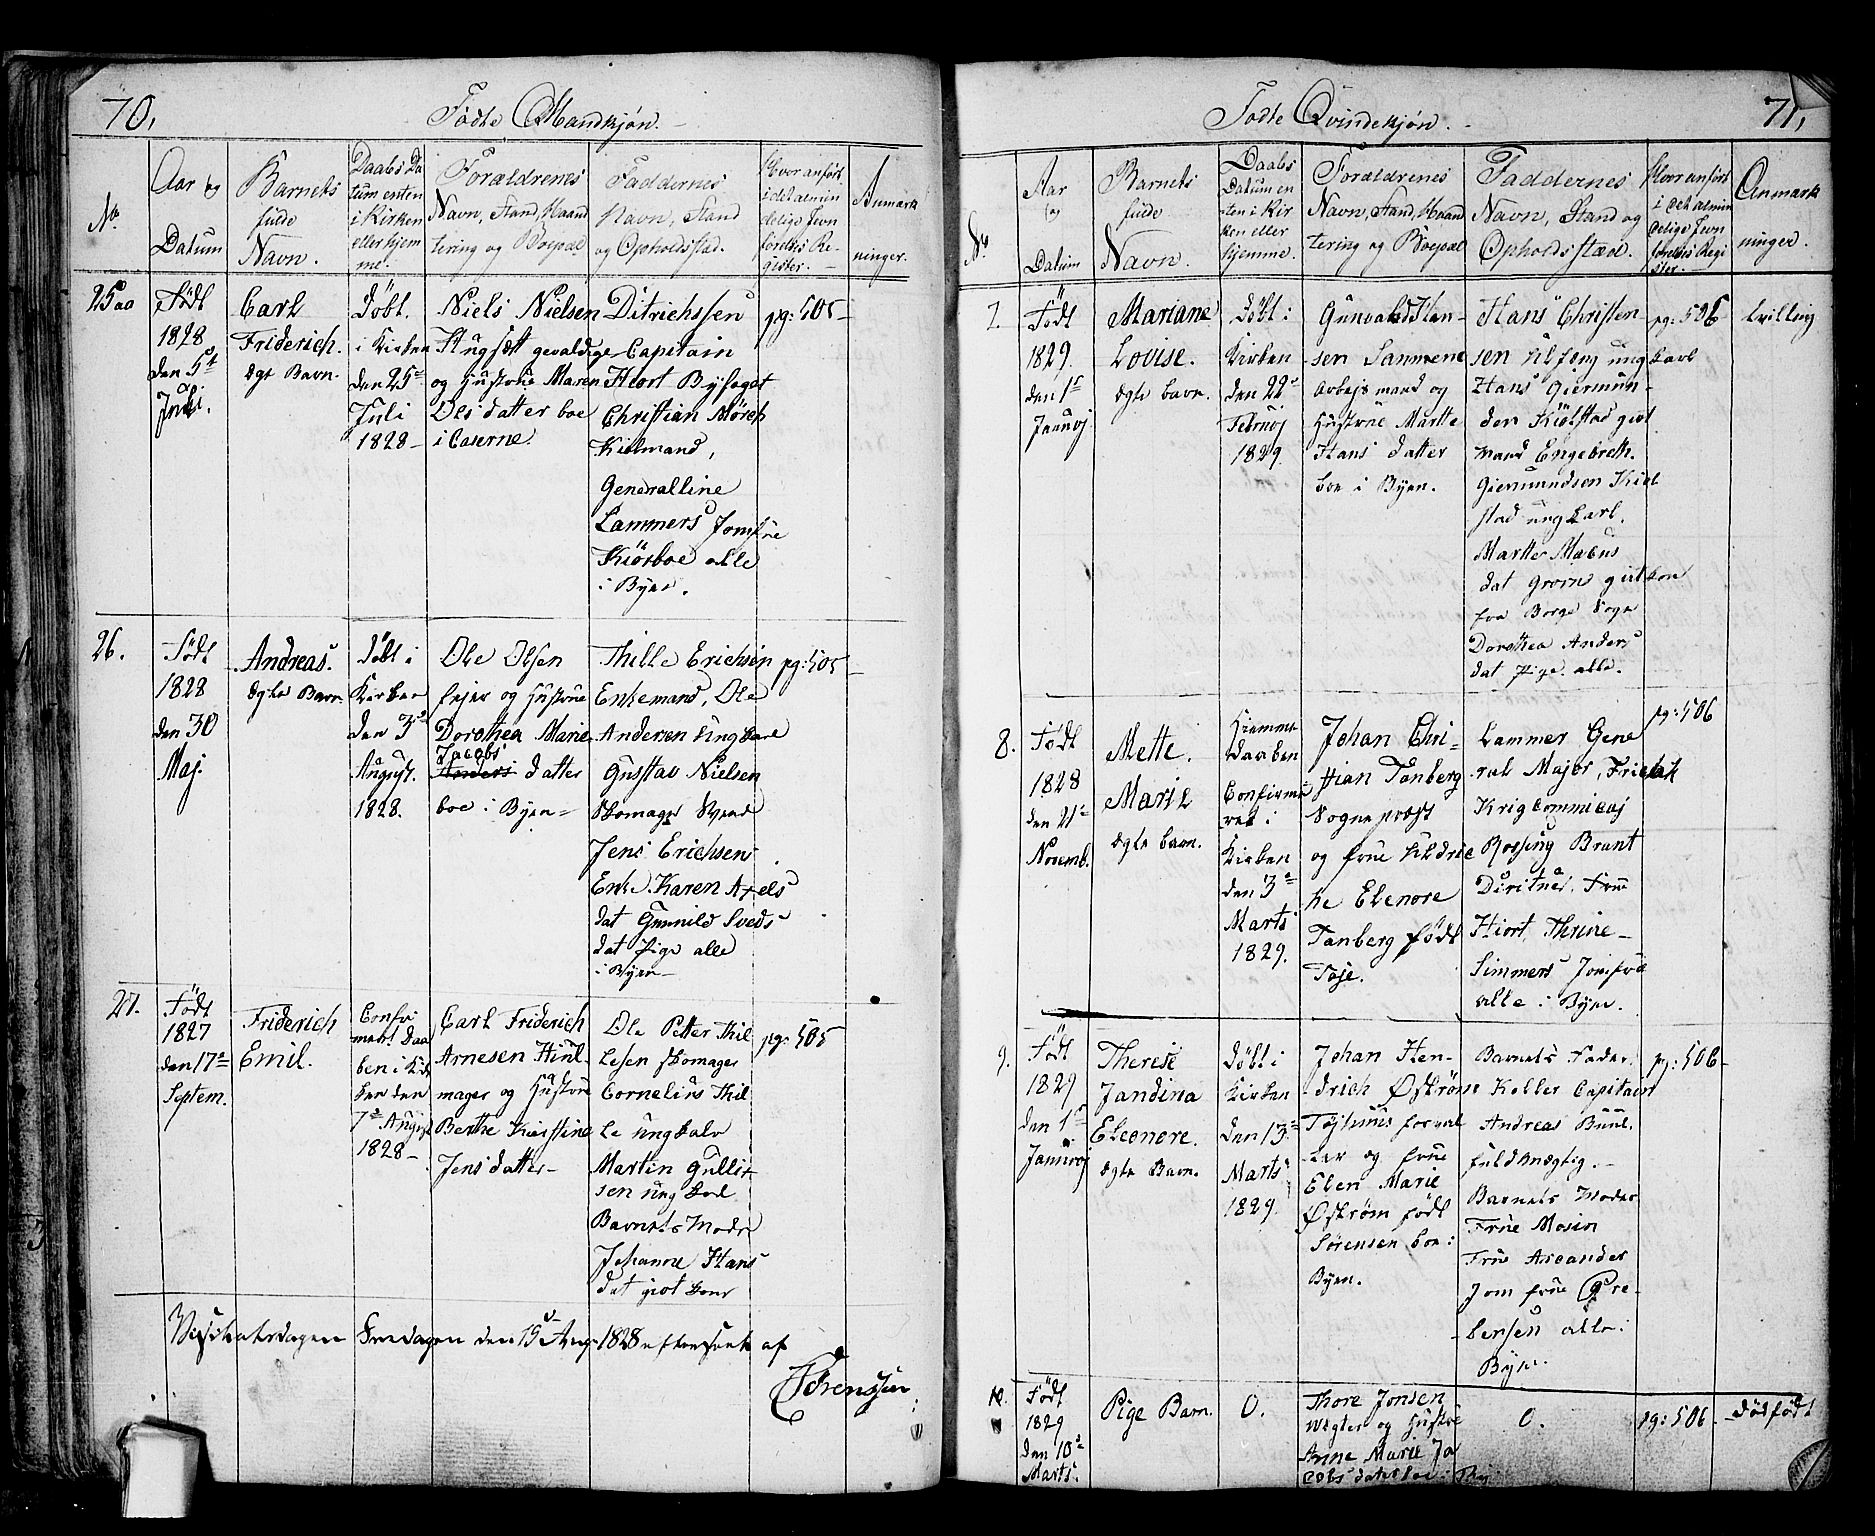 70,
Fødte Mandkjøn.
No.
Aar og
Datum
Barnets
fulde
Navn.
Daabs Da
tum enten
i Kirken
eller hjem
me.
Forældrenes
Navn, Stand, Haand
tering og Boepæl
Faddernes
Navn, Stand
og Opholdsstad.
Hvor anført
i det almin
delige Jevn
førelses Re-
gister.
Anmærk
ninger.
25
Født
1828
den 5te
Juli.
Carl
Friderich.
ægte Barn.
Døbt.
i Kirken
den 25de
Juli
1828
Niels Nielsen
gevaldige
og Hustrue Maren
Ols datter boe
i Caserne
Ditrichssen
Capitain
Hiort Byfoget
Christian Mörch
Kiølmand,
Generalline
Lammers Jomfrue
Kiörboe alle
i Byen.
pg: 505
26.
Født
1828
den 30
Maj.
Andreas.
ægte Barn
Døbt i
Kirken
den 3de
August.
1828.
Ole Olsen
fejer og Hustrue
Dorothea Marie
Jacobs
Anders datter
boe i Byen
Thille Erichsen
Enkemand, Ole
Andersen Ungkarl
Gusttav Nielsen
Skomager Svend
Jens Erichsens
Enke. Karen Axels
dat Gunnild Sveds
dat Pige alle
i Byen
pg: 505
27.
Født
1827
den 17de
Septem.
Friderich
Emil.
Confir
mert Daa
ben i Kir
ken den
7de August
1828
Carl Friderich
Arnesen Hiul
mager og Hustrue
Berthe Kirstine
Jens datter
Ole Petter Thil
lesen skomager
Cornelius Thil
le ungkarl
Martin Gullir
sen ungkarl
Barnets Moder
Johanne Hans
dat givt kone
pg: 505
Visitatsdagen Fredagen den 15de Aug. 1828 efterseet af
Sørenssen
71,
Fødte Qvindekjøn.
No
Aar
og
Datum
Barnets
fulde
Navn.
Daabs
Datum en
ten i Kir
ken eller
hjemme.
Forældrenes
Navn, Stand, Haand
tering og Boepæl
Faddernes
Navn, Stand og
Opholdsstæd.
Hvor anført
i det almin
delige Jevn
førelses Regi
ster.
Anmærk
ninger.
7.
Født
1829.
den 1ste
Januarj
Mariane
Lovise.
ægte barn.
Døbt i
Kirken
den 22de
Februarj
1829.
Gunvald Han-
sen Sannene
Arbejdsmand og
Hustrue Marthe
Hans datter
boe i Byen.
Hans Christen-
sen ungkarl
Hans Giermun-
den Kiölstad givt
mand Engebreth.
Giermundsen Kiöl
stad ungkarl.
Marthe
dat givt kone
fra Borge Sogn
Dorothea Anders
dat Pige. alle.
pg: 506
tvilling
8.
Født
1828
den 21de
Novemb.
Mette.
Marie
ægte barn.
Hiemme
daaben
Confirme
ret i
Kirken
den 3de
Marts
1829.
Johan Chri-
stian Tanberg
Sogneprest
og frue Uldric
ke Elenore
Tanberg født
Toje.
Lammer Gene
ral Major, Friderik
Krigcommicarj
Rossing Brunt
Diritner, Frue
Hiort, Thrine
Simmers Jomfrue
alle i Byen.
pg: 506
9.
Født
1829
den 1ste
Januarj
Therese
Jandina
Eleonore.
ægte Barn.
Døbt i
Kirken
den 13de
Marts
1829.
Johan Hen-
drich Østrøm
Töjhuus forval
ter og frue
Elen Marie
Østrøm født
Sørensen boe i
Byen.
Barnets Fader.
Keller Capitain
Andreas Buul.
fuldmægtig.
Barnets Moder
Frue Mosin
Frue Areander
Jomfrue Gre-
bersen alle i
Byen.
pg: 506
10.
Født
1829
den 10de
Marts.
Pige Barn.
0.
Thore Jonsen
Vægter og Hustrue
Anne Marie Ja
cobs datter boe i Byen
0.
pg: 506
Dødfødt